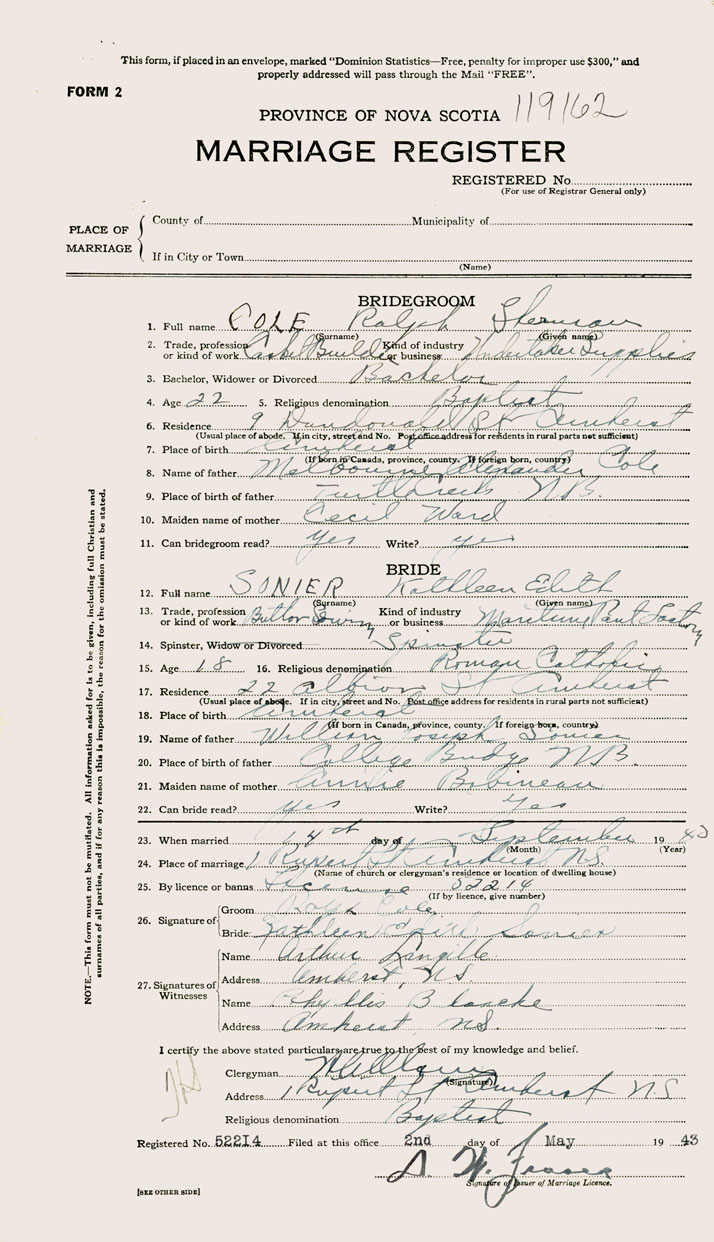 This form, if placed in an envelope, marked "Dominion Statistics—Free, penalty for improper use $300," and
properly addressed will pass through the Mail "FREE".
FORM 2
PROVINCE OF NOVA SCOTIA 119162
MARRIAGE REGISTER
REGISTERED No.
(For use of Registrar General only)
PLACE OF MARRIAGE
County of Municipality of
If in City or Town
(Name)
BRIDEGROOM
1. Full name COLE Ralph Sherman
(Surname) (Given name)
2. Trade, profession or kind of work Casket Builder Kind of industry or business Undertaker Supplies
3. Bachelor, Widower or Divorced Bachelor
4. Age 22 5. Religious denomination Baptist
6. Residence 9 Dundonald St Amherst
(Usual place of abode. If in city, street and No. Post office address for residents in rural parts not sufficient)
7. Place of birth Amherst
(If born in Canada, province, county. If foreign born, country)
8. Name of father Melbourne Alexander Cole
9. Place of birth of father Turtle Creek N.B.
10. Maiden name of mother Cecil Ward
11. Can bridegroom read? Yes Write? yes
BRIDE
12. Full name SONIER Kathleen Edith
(Surname) (Given name)
13. Trade, profession or kind of work Button Sewing Kind of industry or business Maritime Pant Factory
14. Spinster, Widow or Divorced Spinster
15. Age 18 16. Religious denomination Roman Catholic
17. Residence 22 Albion St Amherst
(Usual place of abode. If in city, street and No. Post office address for residents in rural parts not sufficient)
18. Place of birth Amherst
(If born in Canada, province, county. If foreign born, country)
19. Name of father William Joseph Sonier
20. Place of birth of father College Bridge N.B.
21. Maiden name of mother Annie Bobineau
22. Can bride read? yes Write? Yes
23. When married 14th day of September 19
(Month) (Year)
24. Place of marriage 1 Rupert St Amherst N.S.
(Name of church or clergyman's residence or location of dwelling house)
25. By licence or banns License 52214
(If by licence, give number)
26. Signature of
Groom Ralph Cole
Bride Kathleen Edith Sonier
27. Signatures of Witnesses
Name Arthur Langille
Address Amherst, N.S.
Name Phyllis B
Address Amherst, N.S.
I certify the above stated particulars are true to the best of my knowledge and belief.
Clergyman
(Signature)
Address 1 Rupert St Amherst N.S.
Religious denomination Baptist
Registered No. 52214 Filed at this office 2nd day of May 19 43
Signature of Issuer of Marriage Licence.
[SEE OTHER SIDE]
NOTE.—This form must not be mutilated. All information asked for is to be given, including full Christian and
surnames of all parties, and if for any reason this is impossible, the reason for the omission must be stated.